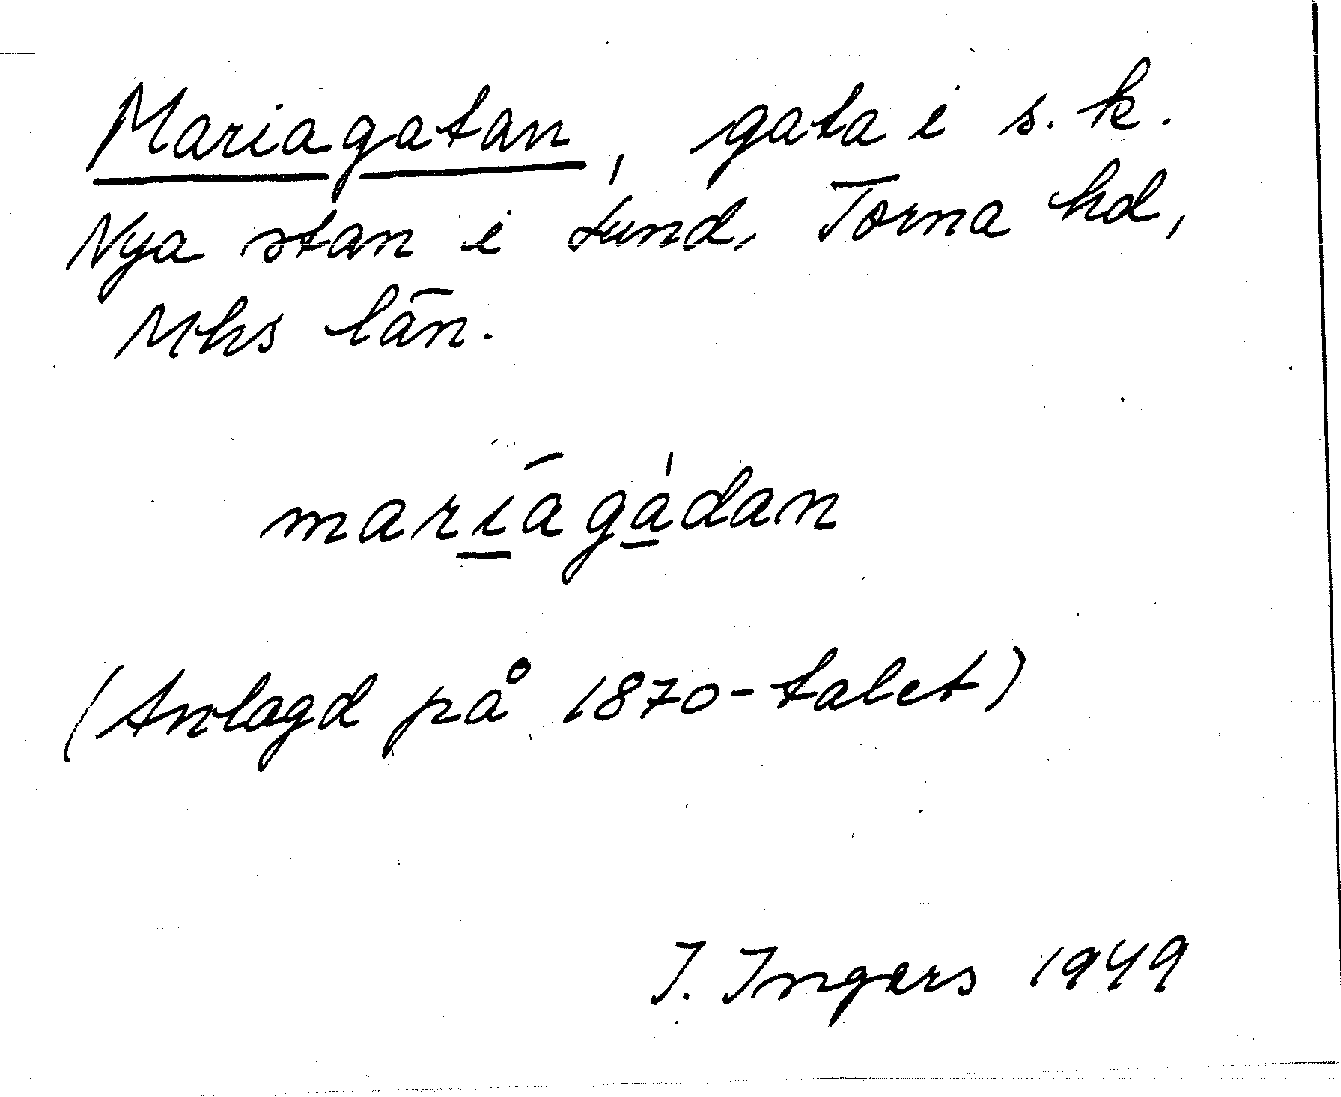 Mariagatan, gata i s.k.
Nya stan i Lund, Torna hd,
Mhs län.
maríagádan
(Anlagd på 1870-talet)
I. Ingers 1949